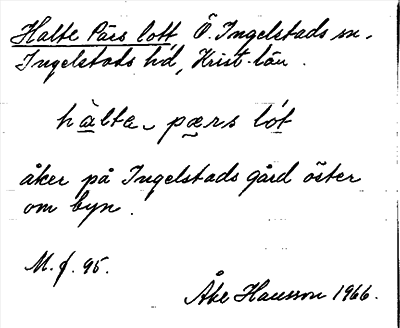 Halte Pärs lott, Ö. Ingelstads sn.
Ingelstads hd, Krist. län.
hàlta pærs lót
åker på Ingelstads gård öster
om byn.
M. f. 95.
Åke Hansson 1966.